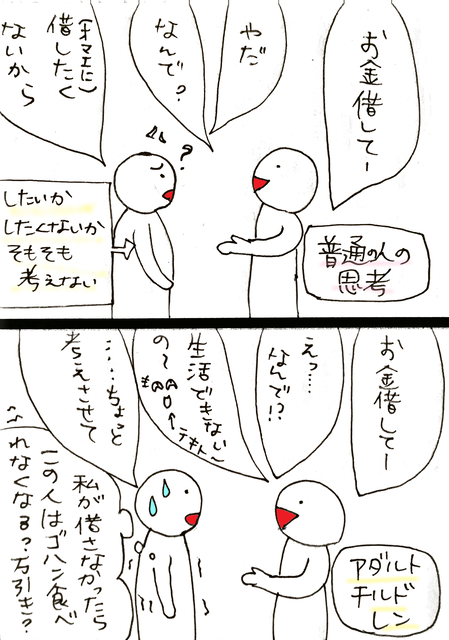 お金借してー
やだ
なんで?
(オマエに)
借したく
ないから
?
したいか
したくないか
そもそも
考えない
普通の人の
思考
お金借してー
えっ……
なんで!?
生活できない〜
の〜
テキトー
……ちょっと
考えさせて
私が借さなかったら
この人はゴハン食べ
れなくなる?万引き?
アダルト
チルド
レン